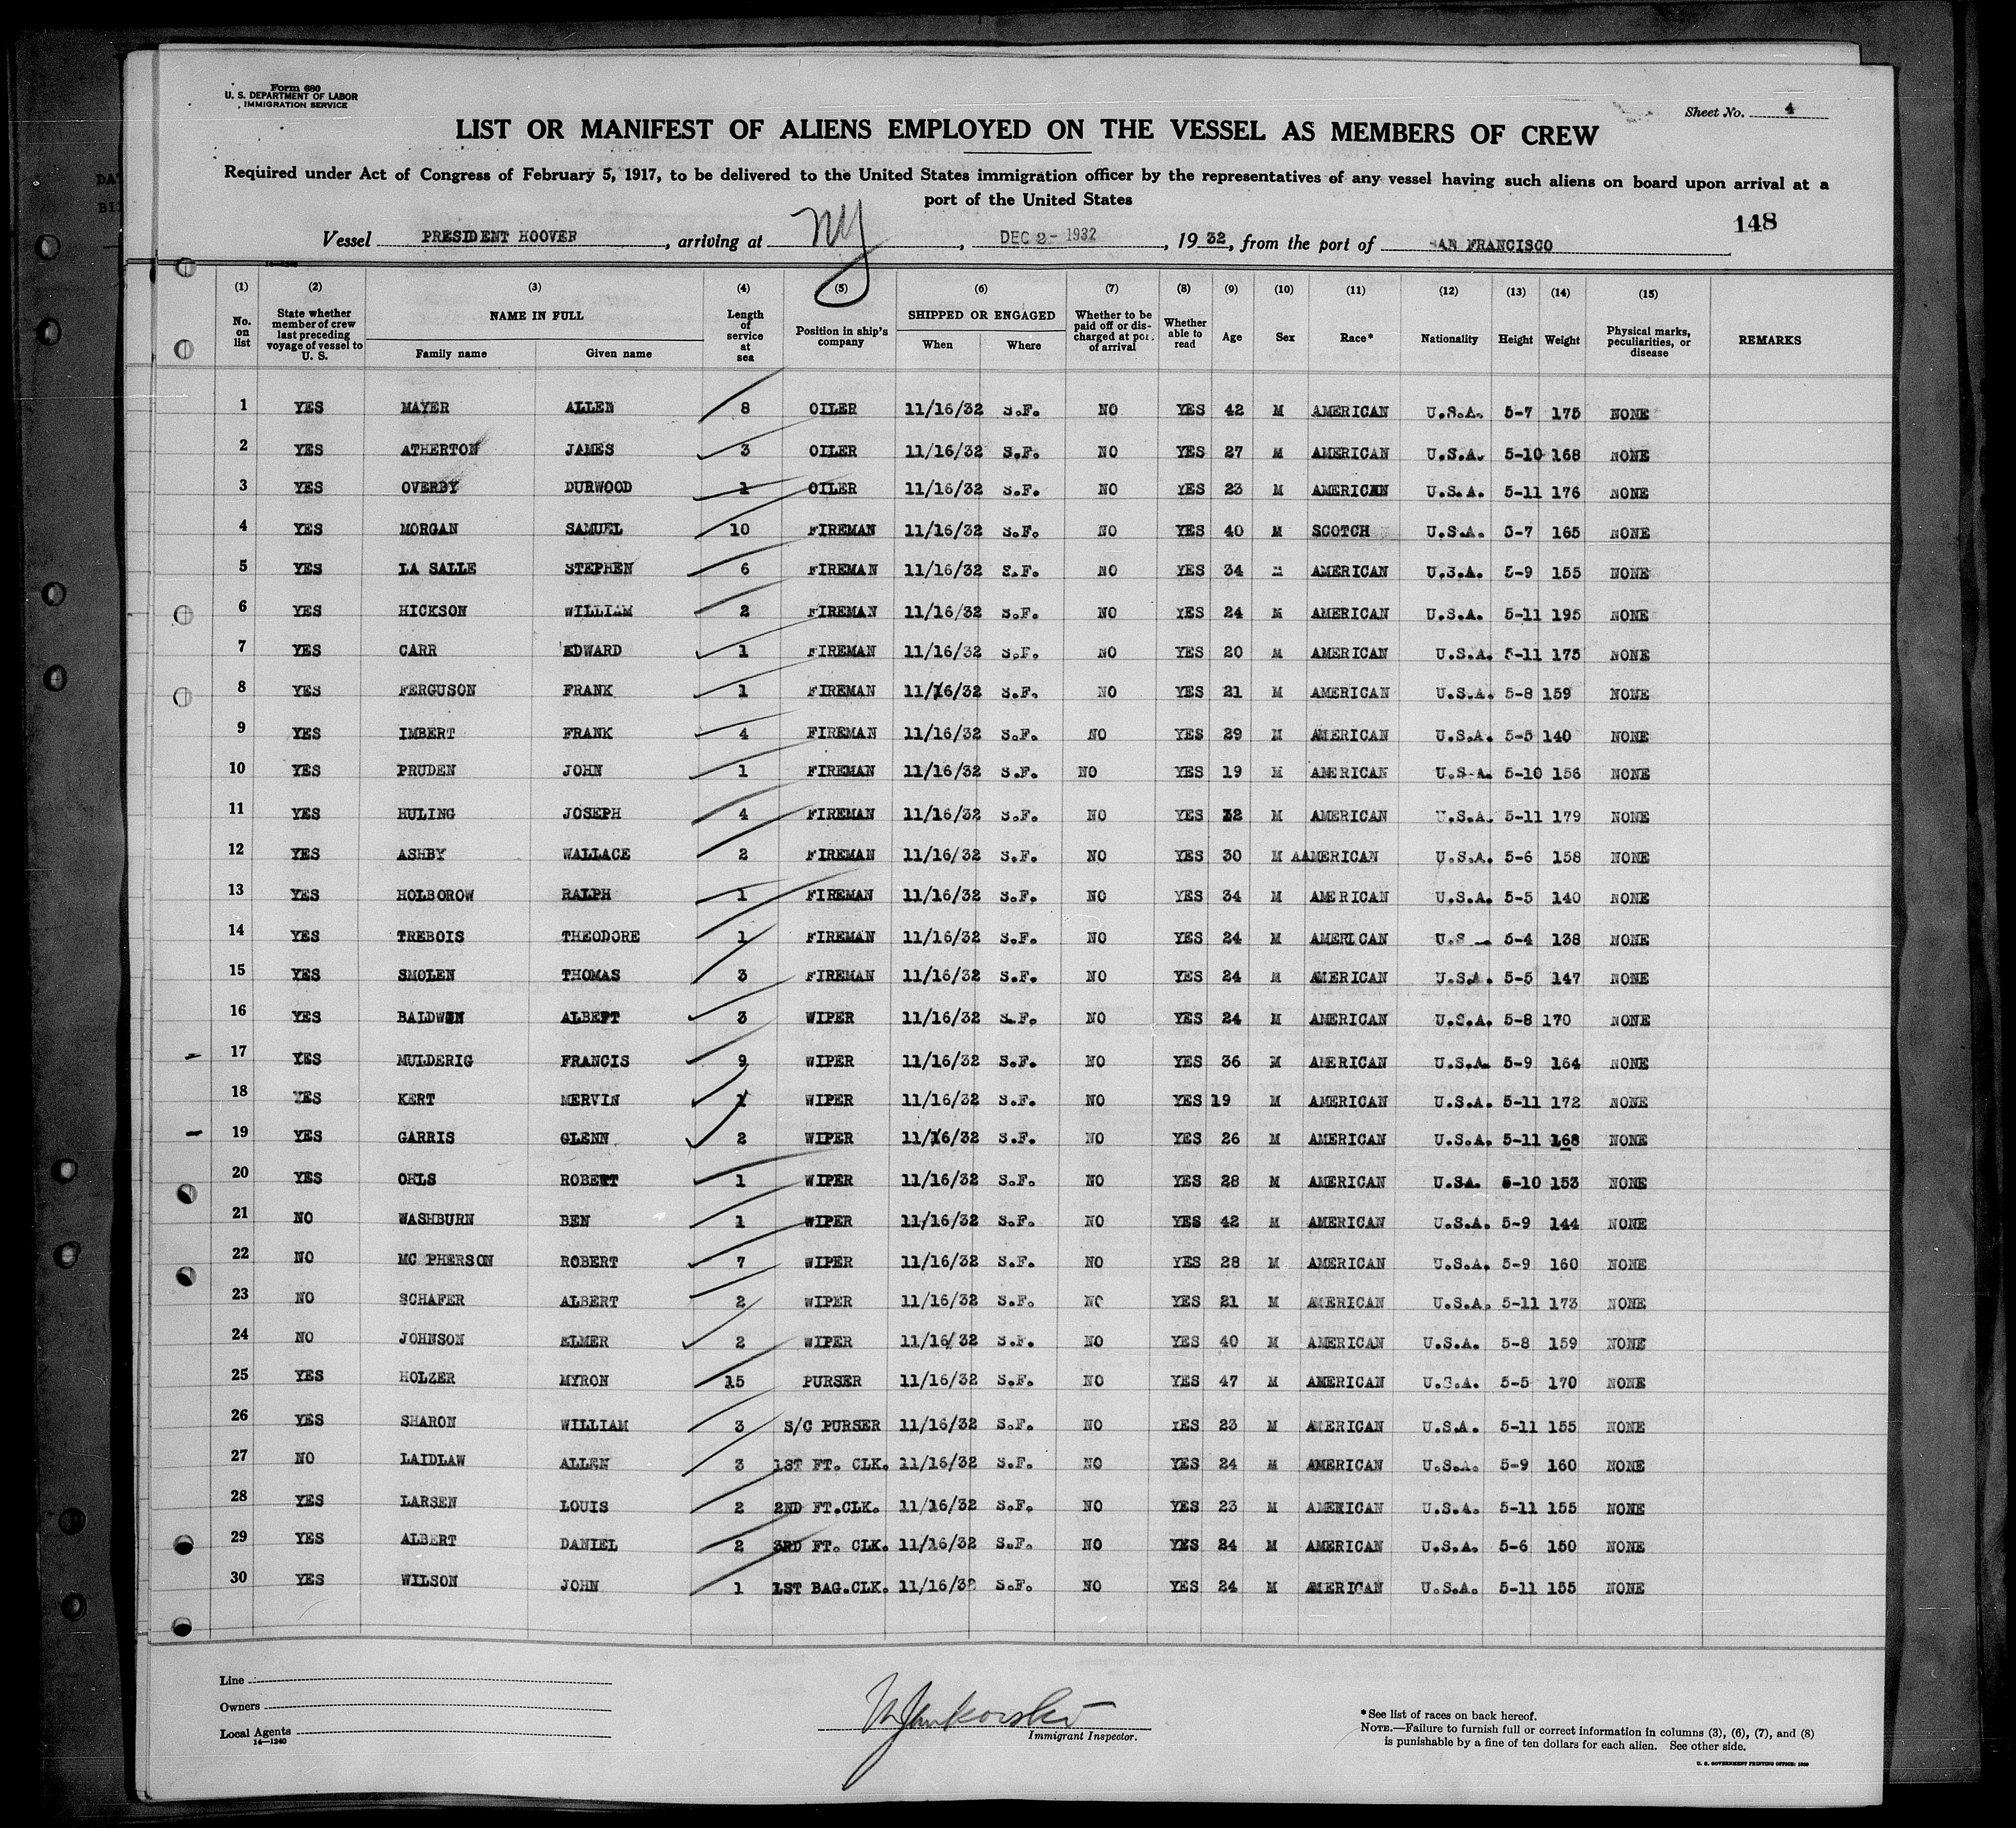 Form 680
U. S. DEPARTMENT OF LABOR
IMMIGRATION SERVICE
Sheet No. 4
LIST OR MANIFEST OF ALIENS EMPLOYED ON THE VESSEL AS MEMBERS OF CREW
Required under Act of Congress of February 5, 1917, to be delivered to the United States immigration officer by the representatives of any vessel having such aliens on board upon arrival at a
port of the United States
148
Vessel PRESIDENT HOOVER, arriving at NY, DEC 2-1932, 1932, from the port of SAN FRANCISCO
(1) (2) (3) (4) (5) (6) (7) (8) (9) (10) (11) (12) (13) (14) (15)
No. on list State whether member of crew last preceding voyage of vessel to U. S. NAME IN FULL Family name Given name Length of service at sea Position in ship's company SHIPPED OR ENGAGED When Where Whether to be paid off or discharged at port of arrival Whether able to read Age Sex Race* Nationality Height Weight Physical marks, peculiarities, or disease REMARKS
1 YES MAYER ALLEN 8 OILER 11/16/32 S.F. NO YES 42 M AMERICAN U.S.A. 5-7 175 NONE
2 YES ATHERTON JAMES 3 OILER 11/16/32 S.F. NO YES 27 M AMERICAN U.S.A. 5-10 168 NONE
3 YES OVERBY DURWOOD 1 OILER 11/16/32 S.F. NO YES 23 M AMERICAN U.S.A. 5-11 176 NONE
4 YES MORGAN SAMUEL 10 FIREMAN 11/16/32 S.F. NO YES 40 M SCOTCH U.S.A. 5-7 165 NONE
5 YES LA SALLE STEPHEN 6 FIREMAN 11/16/32 S.F. NO YES 34 M AMERICAN U.S.A. 5-9 155 NONE
6 YES HICKSON WILLIAM 2 FIREMAN 11/16/32 S.F. NO YES 24 M AMERICAN U.S.A. 5-11 195 NONE
7 YES CARR EDWARD 1 FIREMAN 11/16/32 S.F. NO YES 20 M AMERICAN U.S.A. 5-11 175 NONE
8 YES FERGUSON FRANK 1 FIREMAN 11/16/32 S.F. NO YES 21 M AMERICAN U.S.A. 5-8 159 NONE
9 YES IMBERT FRANK 4 FIREMAN 11/16/32 S.F. NO YES 29 M AMERICAN U.S.A. 5-5 140 NONE
10 YES PRUDEN JOHN 1 FIREMAN 11/16/32 S.F. NO YES 19 M AMERICAN U.S.A. 5-10 156 NONE
11 YES HULING JOSEPH 4 FIREMAN 11/16/32 S.F. NO YES 32 M AMERICAN U.S.A. 5-11 179 NONE
12 YES ASHBY WALLACE 2 FIREMAN 11/16/32 S.F. NO YES 30 M AAMERICAN U.S.A. 5-6 158 NONE
13 YES HOLBOROW RALPH 1 FIREMAN 11/16/32 S.F. NO YES 34 M AMERICAN U.S.A. 5-5 140 NONE
14 YES TREBOIS THEODORE 1 FIREMAN 11/16/32 S.F. NO YES 24 M AMERICAN U.S 5-4 138 NONE
15 YES SMOLEN THOMAS 3 FIREMAN 11/16/32 S.F. NO YES 24 M AMERICAN U.S.A. 5-5 147 NONE
16 YES BALDWIN ALBERT 3 WIPER 11/16/32 S.F. NO YES 24 M AMERICAN U.S.A. 5-8 170 NONE
17 YES MULDERIG FRANCIS 9 WIPER 11/16/32 S.F. NO YES 36 M AMERICAN U.S.A. 5-9 164 NONE
18 YES KERT MERVIN 1 WIPER 11/16/32 S.F. NO YES 19 M AMERICAN U.S.A. 5-11 172 NONE
19 YES GARRIS GLENN 2 WIPER 11/16/32 S.F. NO YES 26 M AMERICAN U.S.A. 5-11 168 NONE
20 YES OHLS ROBERT 1 WIPER 11/16/32 S.F. NO YES 28 M AMERICAN U.SA. 5-10 153 NONE
21 NO WASHBURN BEN 1 WIPER 11/16/32 S.F. NO YES 42 M AMERICAN U.S.A. 5-9 144 NONE
22 NO MC PHERSON ROBERT 7 WIPER 11/16/32 S.F. NO YES 28 M AMERICAN U.S.A. 5-9 160 NONE
23 NO SCHAFER ALBERT 2 WIPER 11/16/32 S.F. NO YES 21 M AMERICAN U.S.A. 5-11 173 NONE
24 NO JOHNSON ELMER 2 WIPER 11/16/32 S.F. NO YES 40 M AMERICAN U.S.A. 5-8 159 NONE
25 YES HOLZER MYRON 15 PURSER 11/16/32 S.F. NO YES 47 M AMERICAN U.S.A. 5-5 170 NONE
26 YES SHARON WILLIAM 3 S/C PURSER 11/16/32 S.F. NO YES 23 M AMERICAN U.S.A. 5-11 155 NONE
27 NO LAIDLAW ALLEN 3 1ST FT. CLK. 11/16/32 S.F. NO YES 24 M AMERICAN U.S.A. 5-9 160 NONE
28 YES LARSEN LOUIS 2 2ND FT.CLK. 11/16/32 S.F. NO YES 23 M AMERICAN U.S.A. 5-11 155 NONE
29 YES ALBERT DANIEL 2 3RD FT. CLK. 11/16/32 S.F. NO YES 24 M AMERICAN U.S.A. 5-6 150 NONE
30 YES WILSON JOHN 1 1ST BAG.CLK. 11/16/32 S.F. NO YES 24 M AMERICAN U.S.A. 5-11 155 NONE
Line
Owners
Local Agents
14—1240
Immigrant Inspector.
*See list of races on back hereof.
NOTE.—Failure to furnish full or correct information in columns (3), (6), (7), and (8)
is punishable by a fine of ten dollars for each alien. See other side.